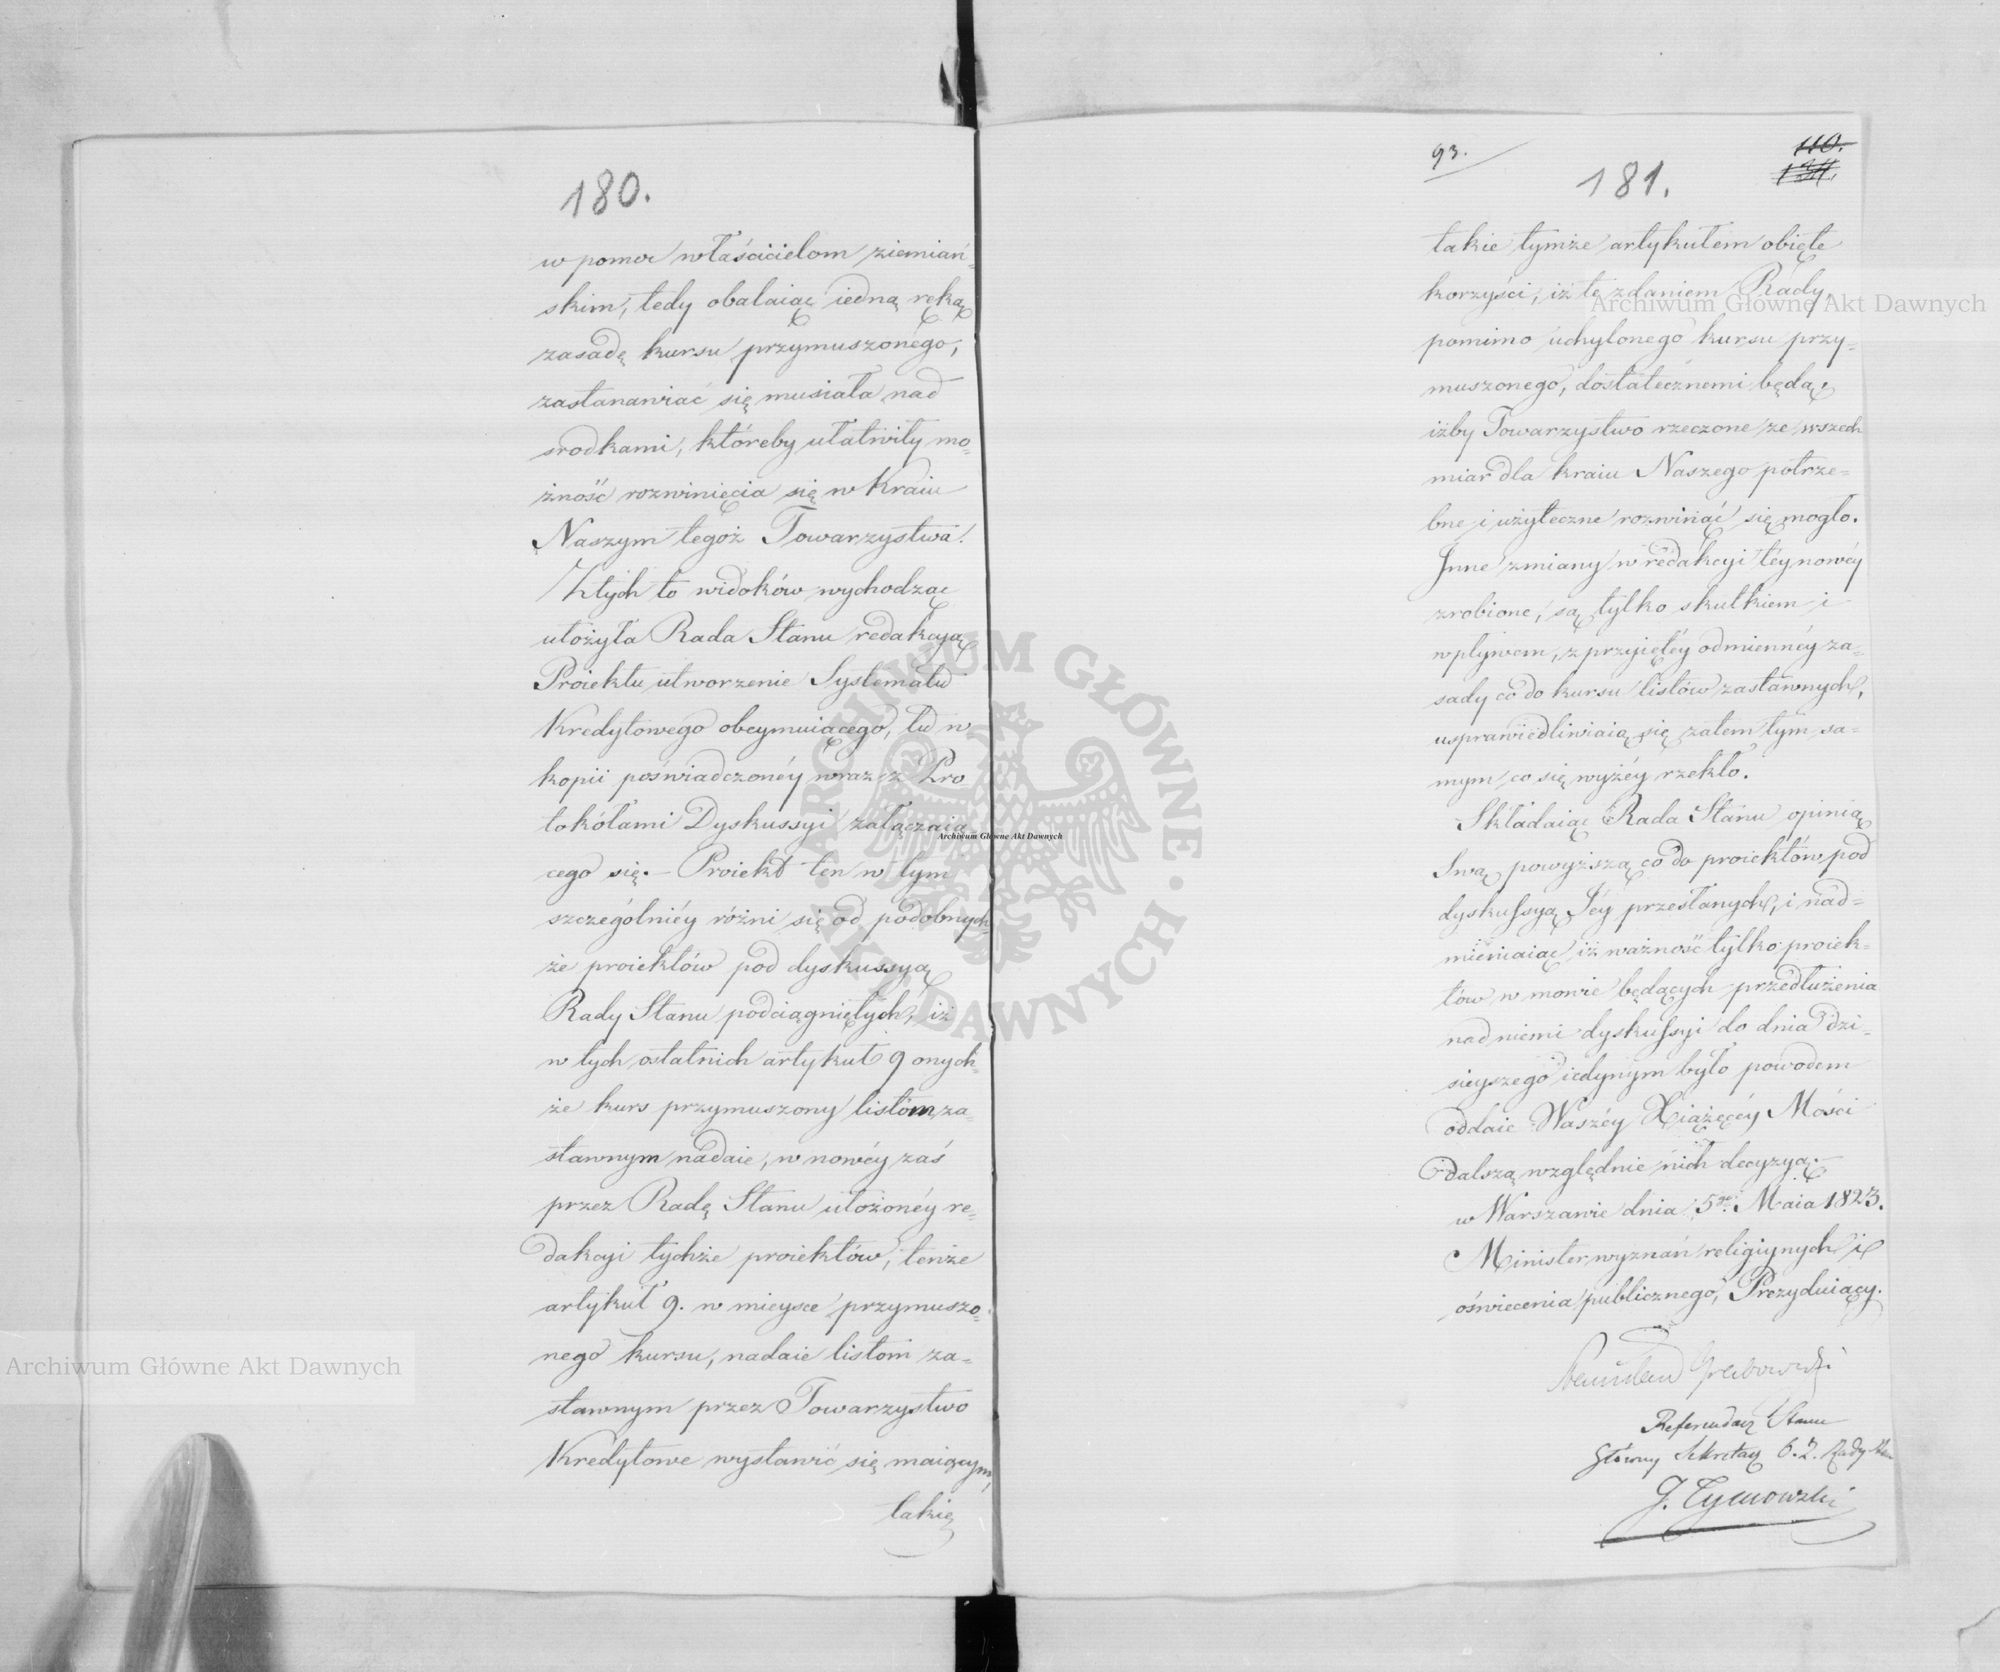 180.
w pomoc właścicielom ziemiań-
skim, tedy obalaiąc iedną ręką
zasadę kursu przymuszonego,
zastanawiać się musiała nad
srodkami, któreby ułatwiły mo-
żność rozwinięcia się w Kraiu
Naszym tegoż Towarzystwa.
Z tych to widoków wychodząc
ułożyła Rada Stanu redakcyą
Proiektu utworzenie Systematu
Kredytowego obeymuiącego, tu w
kopii poświadczonéy wraz z Pro-
tokółami Dyskussyi załączaią
cego się. – Proiekt ten w tym
szczególniéy różni się od podobnych-
że proiektów pod dyskussyą
Rady Stanu podciągniętych, iż
w tych ostatnich artykuł 9 onych-
że kurs przymuszony listom za-
stawnym nadaie, w nowéy zaś
przez Radę Stanu ułożonéy re-
dakcyi tychże proiektów, tenże
artykuł 9. w mieysce przymuszo-
nego kursu, nadaie listom za-
stawnym przez Towarzystwo
Kredytowe wystawić się maiącym,
takie
93.
110.
181.
takie tymże artykułem obięte
korzyści, iż te zdaniem Rady,
pomimo uchylonego kursu przy-
muszonego, dostatecznemi będą,
iżby Towarzystwo rzeczone ze wszech
miar dla kraiu Naszego potrze-
bne i użyteczne rozwinąć się mogło.
Inne zmiany w redakcyi téy nowéy
zrobione, są tylko skutkiem i
wpływem, z przyiętéy odmiennéy za-
sady co do kursu listów zastawnych,
usprawiedliwiaią się zatem tym sa-
mym co się wyżéy rzekło.
Składaiąc Rada Stanu opinią
Swą powyższą co do proiektów pod
dyskussyą Jéy przesłanych, i nad-
mieniaiąc iż ważność tylko proiek-
tów w mowie będących przedłużenia
nad niemi dyskussyi do dnia dzi-
sieyszego iedynym było powodem
oddaie Waszéy Xiążęcéy Mości
dalszą względnie nich decyzyą. –
w Warszawie dnia 5go Maia 1823.
Minister wyznań religiynych i
oświecenia publicznego, Prezyduiący.
Stanisław Grabowski
Referendarz Stanu
Główny Sekretarz
J. Tymowski
Archiwum Główne Akt Dawnych
Archiwum Główne Akt Dawnych
Archiwum Główne Akt Dawnych
ARCHIWUM GŁÓWNE · AKT DAWNYCH ·